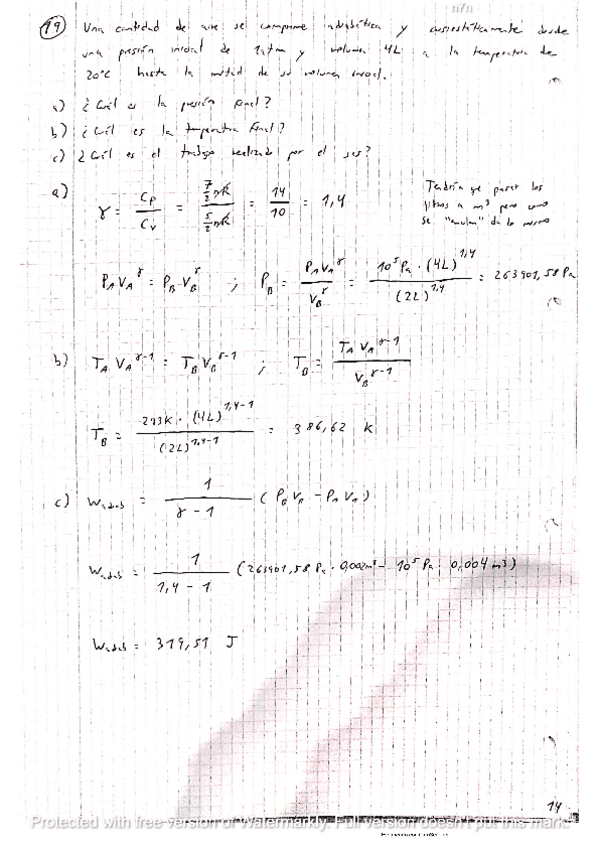 n7n
19) Una cantidad de aire se comprime adiabática y cuasiestáticamente desde
una presión inicial de 1atm y volumen 4L a la temperatura de
20°C hasta la mitad de su volumen inicial.
a) ¿Cuál es la presión final?
b) ¿Cuál es la temperatura final?
c) ¿Cuál es el trabajo realizado por el gas?
a) γ = Cp/Cv = (7/2 nR)/(5/2 nR) = 14/10 = 1,4
Tendría que pasar los
litros a m³ pero como
se "anulan" da lo mismo
P_A V_A^γ = P_B V_B^γ ; P_B = P_A V_A^γ / V_B^γ = 10^5 Pa · (4L)^1,4 / (2L)^1,4 = 263901,58 Pa
b) T_A V_A^γ-1 = T_B V_B^γ-1 ; T_B = T_A V_A^γ-1 / V_B^γ-1
T_B = 293K · (4L)^1,4-1 / (2L)^1,4-1 = 386,62 K
c) W_adiab = 1/(γ-1) (P_B V_B - P_A V_A)
W_adiab = 1/(1,4 - 1) (263901,58 Pa · 0,002m³ - 10^5 Pa · 0,004 m³)
W_adiab = 319,51 J
14
Protected with free version of Watermarkly. Full version doesn't put this mark.